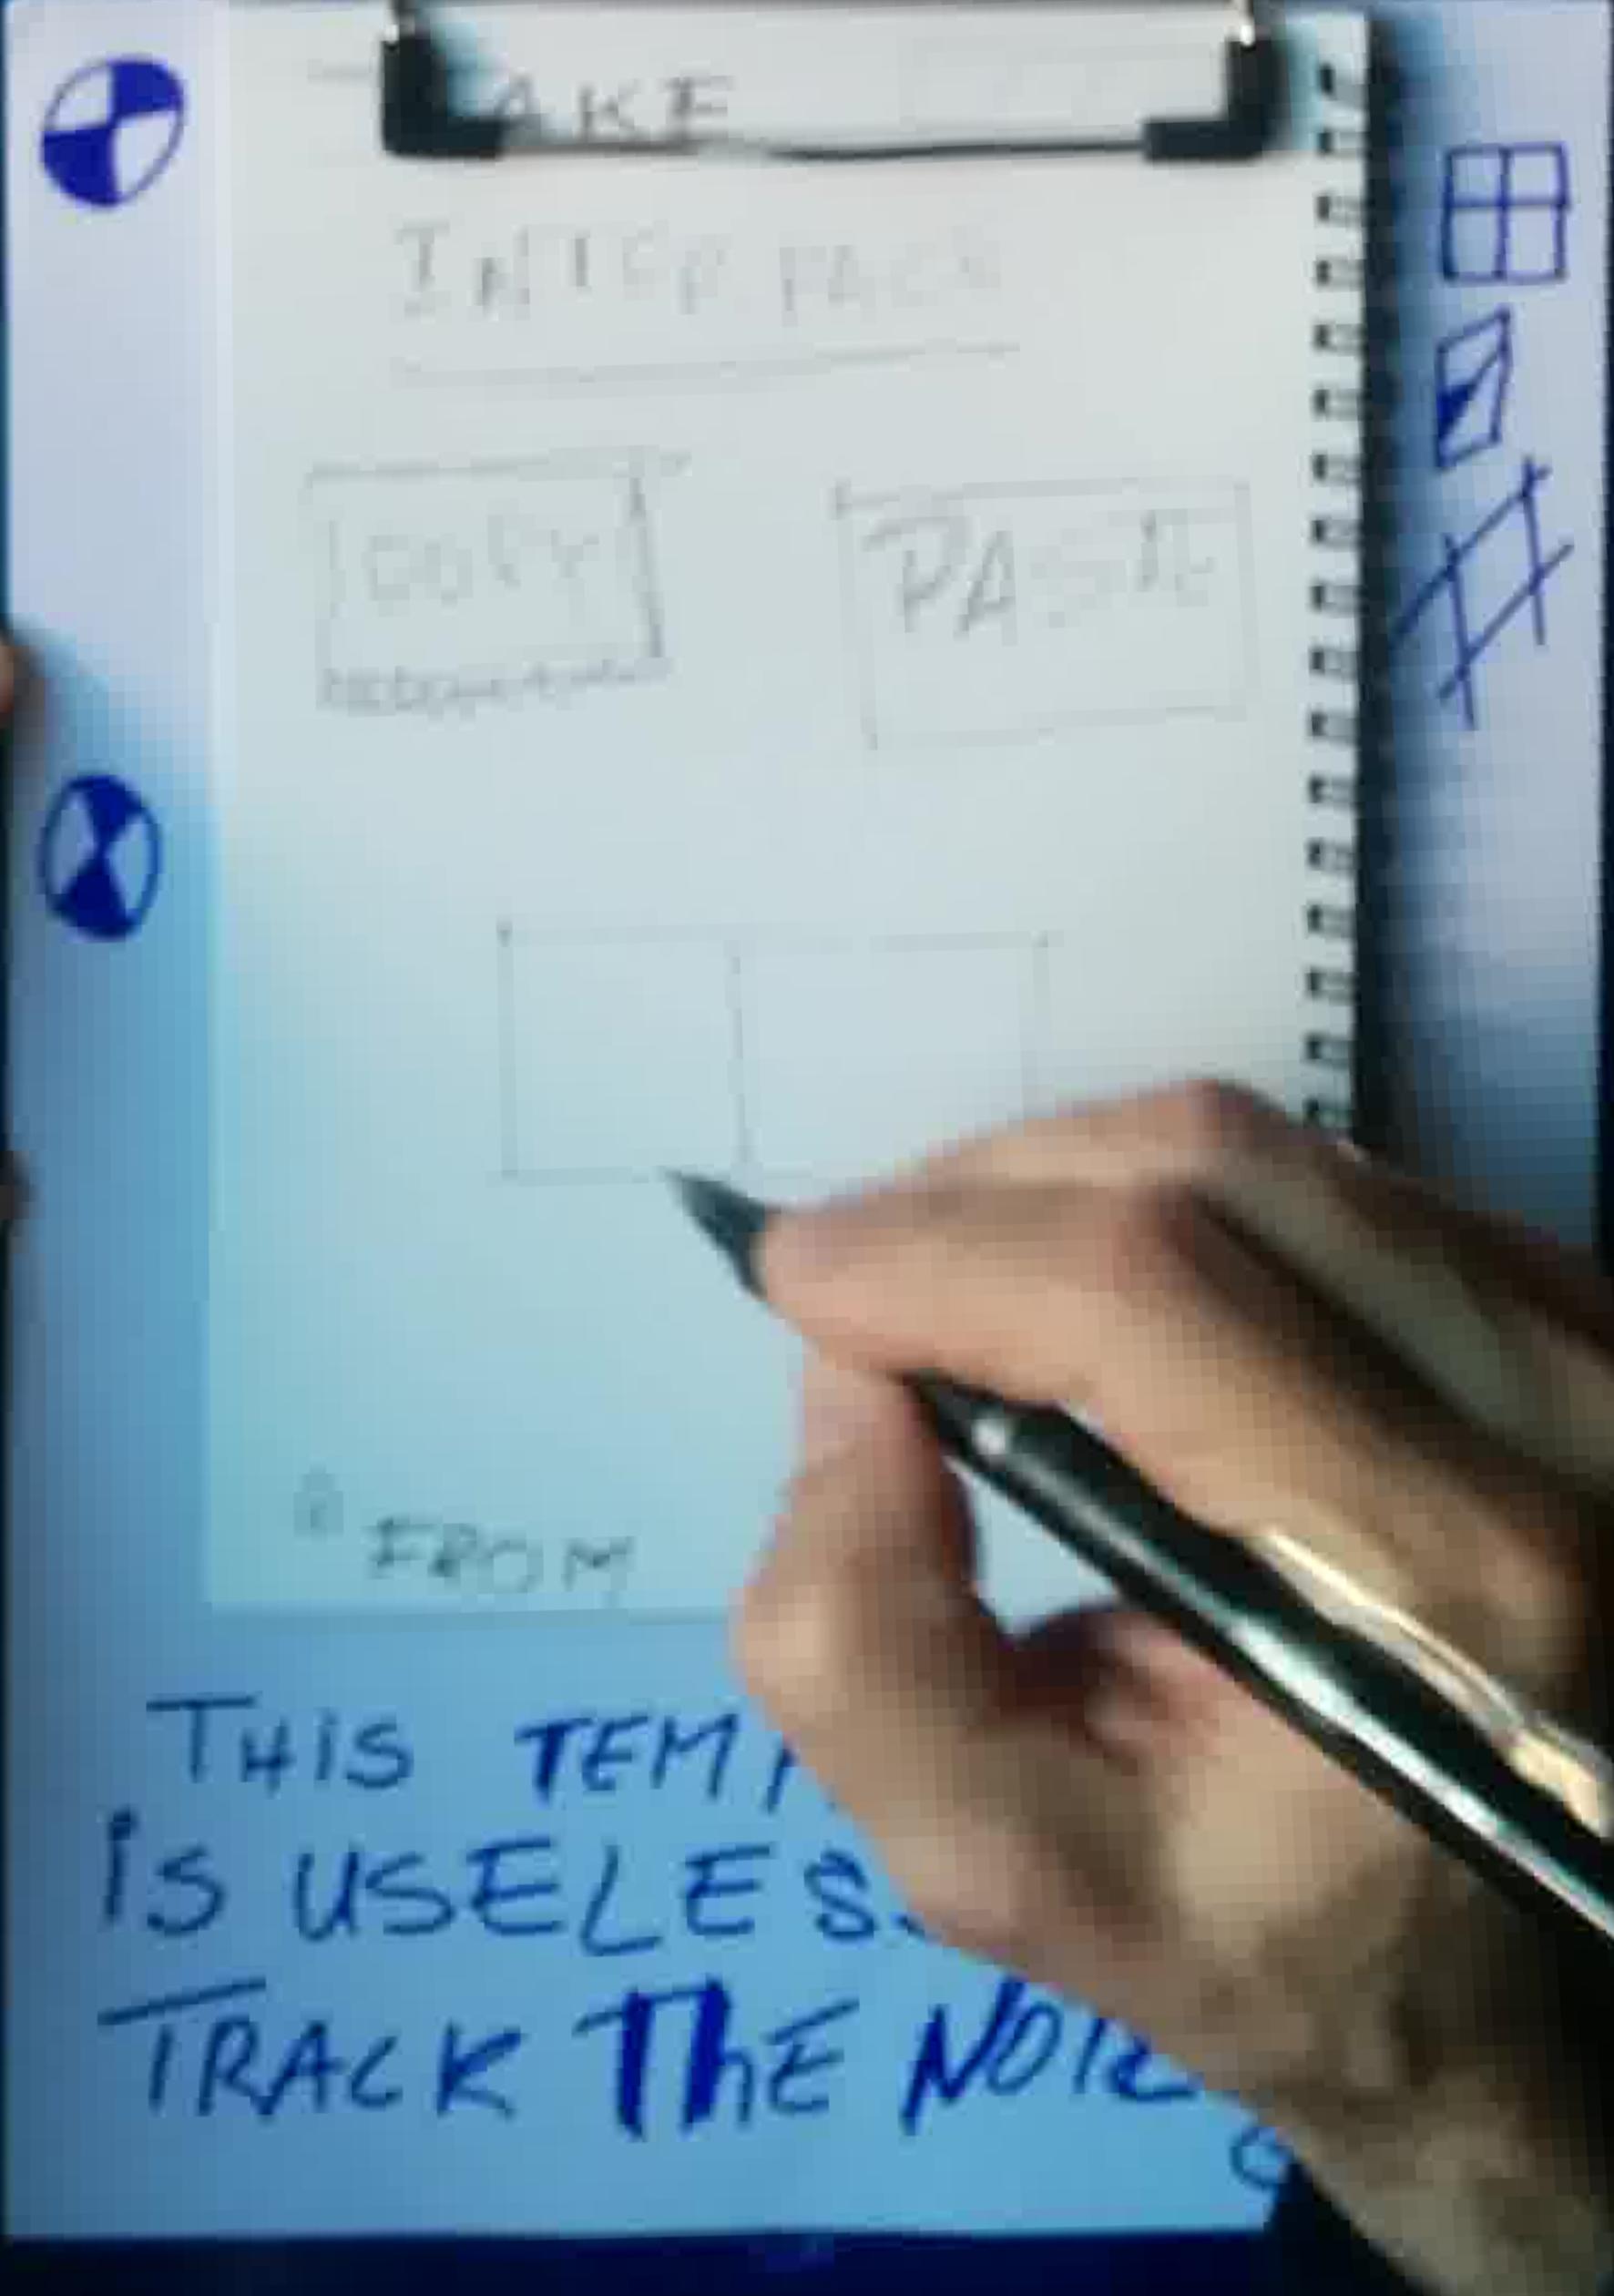 AKE
INTERFACE
COPY PASTE
FROM
THIS TEMP
IS USELES
TRACK THE